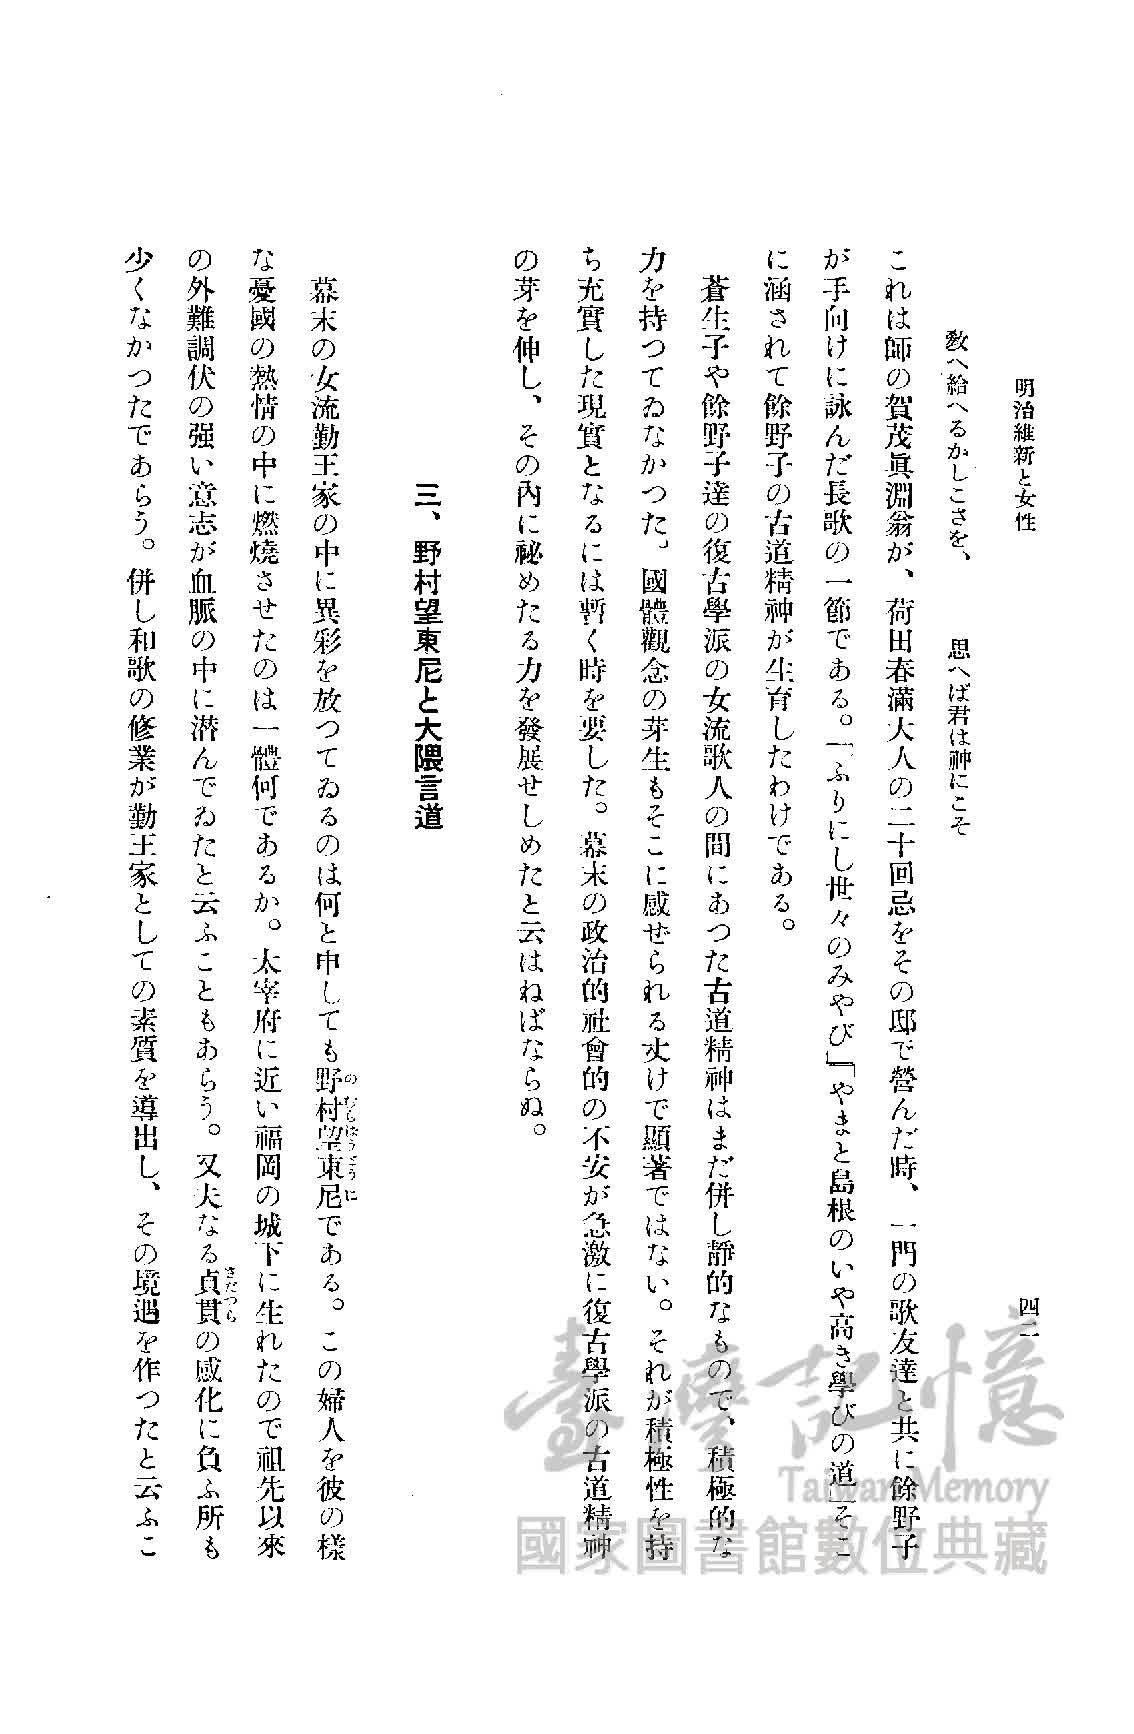 明治維新と女性
四二
敎へ給へるかしこさを、　思へば君は神にこそ
これは師の賀茂眞淵翁が、荷田春滿大人の二十回忌をその邸で營んだ時、一門の歌友達と共に餘野子
が手向けに詠んだ長歌の一節である。「ふりにし世々のみやび」「やまと島根のいや高き學びの道」そこ
に涵されて餘野子の古道精神が生育したわけである。
蒼生子や餘野子達の復古學派の女流歌人の間にあつた古道精神はまだ併し靜的なもので、積極的な
力を持つてゐなかつた。國體觀念の芽生もそこに感ぜられる丈けで顯著ではない。それが積極性を持
ち充實した現實となるには暫く時を要した。幕末の政治的社會的の不安が急激に復古學派の古道精神
の芽を伸し、その內に祕めたる力を發展せしめたと云はねばならぬ。
三、野村望東尼と大隈言道
幕末の女流勤王家の中に異彩を放つてゐるのは何と申しても野村望東尼である。この婦人を彼の樣
のむらばうとうに
な憂國の熱情の中に燃燒させたのは一體何であるか。太宰府に近い福岡の城下に生れたので祖先以來
の外難調伏の强い意志が血脈の中に潜んでゐたと云ふこともあらう。又夫なる貞貫の感化に負ふ所も
さだつら
少くなかつたであらう。併し和歌の修業が勤王家としての素質を導出し、その境遇を作つたと云ふこ
臺灣記憶
Taiwan Memory
國家圖書館數位典藏